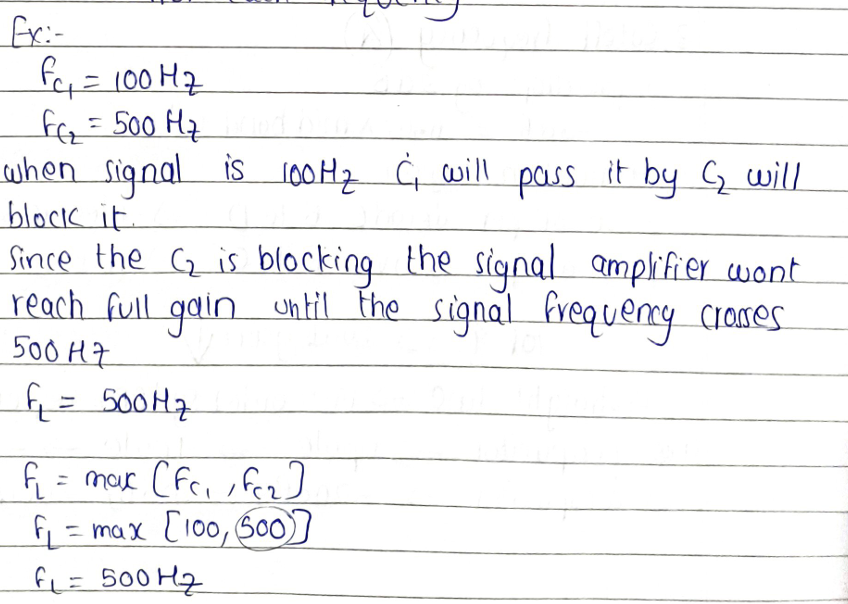 frequency
Ex:-
fC1 = 100 Hz
fC2 = 500 Hz
when signal is 100Hz C1 will pass it by C2 will
block it.
Since the C2 is blocking the signal amplifier wont
reach full gain until the signal frequency crosses
500 Hz
fL = 500Hz
fL = max [fC1, fC2]
fL = max [100, 500]
fL = 500 Hz